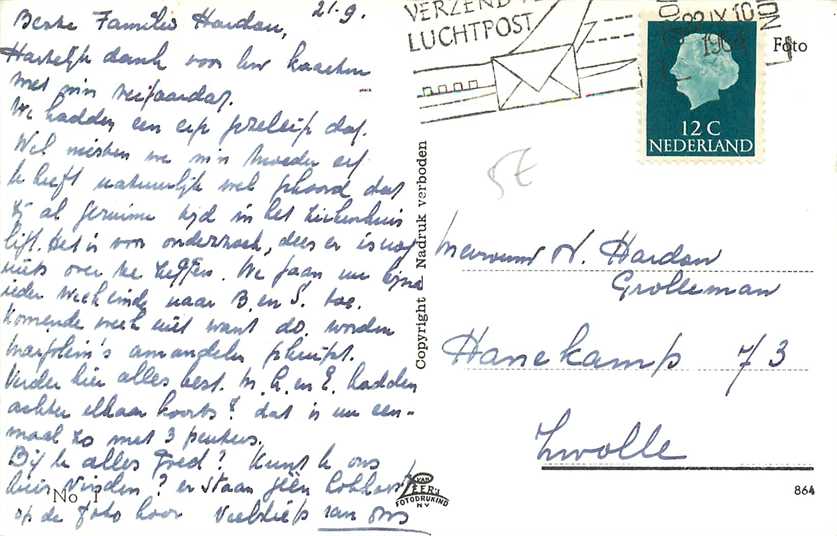 21-9.
Beste Familie Hardon,
Hartelijk dank voor uw kaarten
met m'n verjaardag.
We hadden een erg gezellige dag.
Wel misten we m'n moeder erg
U heeft natuurlijk wel gehoord dat
zij al geruime tijd in het ziekenhuis
ligt. Het is voor onderzoek, dus er is nog
niets over te zeggen. We gaan nu bijna
ieder weekeinde naar B. en S. toe.
Komende week niet want do. worden
Marjolein's amandelen geknipt.
Verder hier alles best. M. G. en E. hadden
achter elkaar koorts! dat is nu een-
maal zo met 3 peuters.
Bij U alles goed? Kunt U ons
hier vinden? er staan géén
op de foto hoor Veel liefs van ons
VERZEND
LUCHTPOST
IX.10
Foto
12 C
NEDERLAND
5€
Copyright Nadruk verboden
Mevrouw N. Hardon
Grolleman
Hanekamp 73
Zwolle
No 1
VAN LEER'S
FOTODRUKIND
N.V.
864